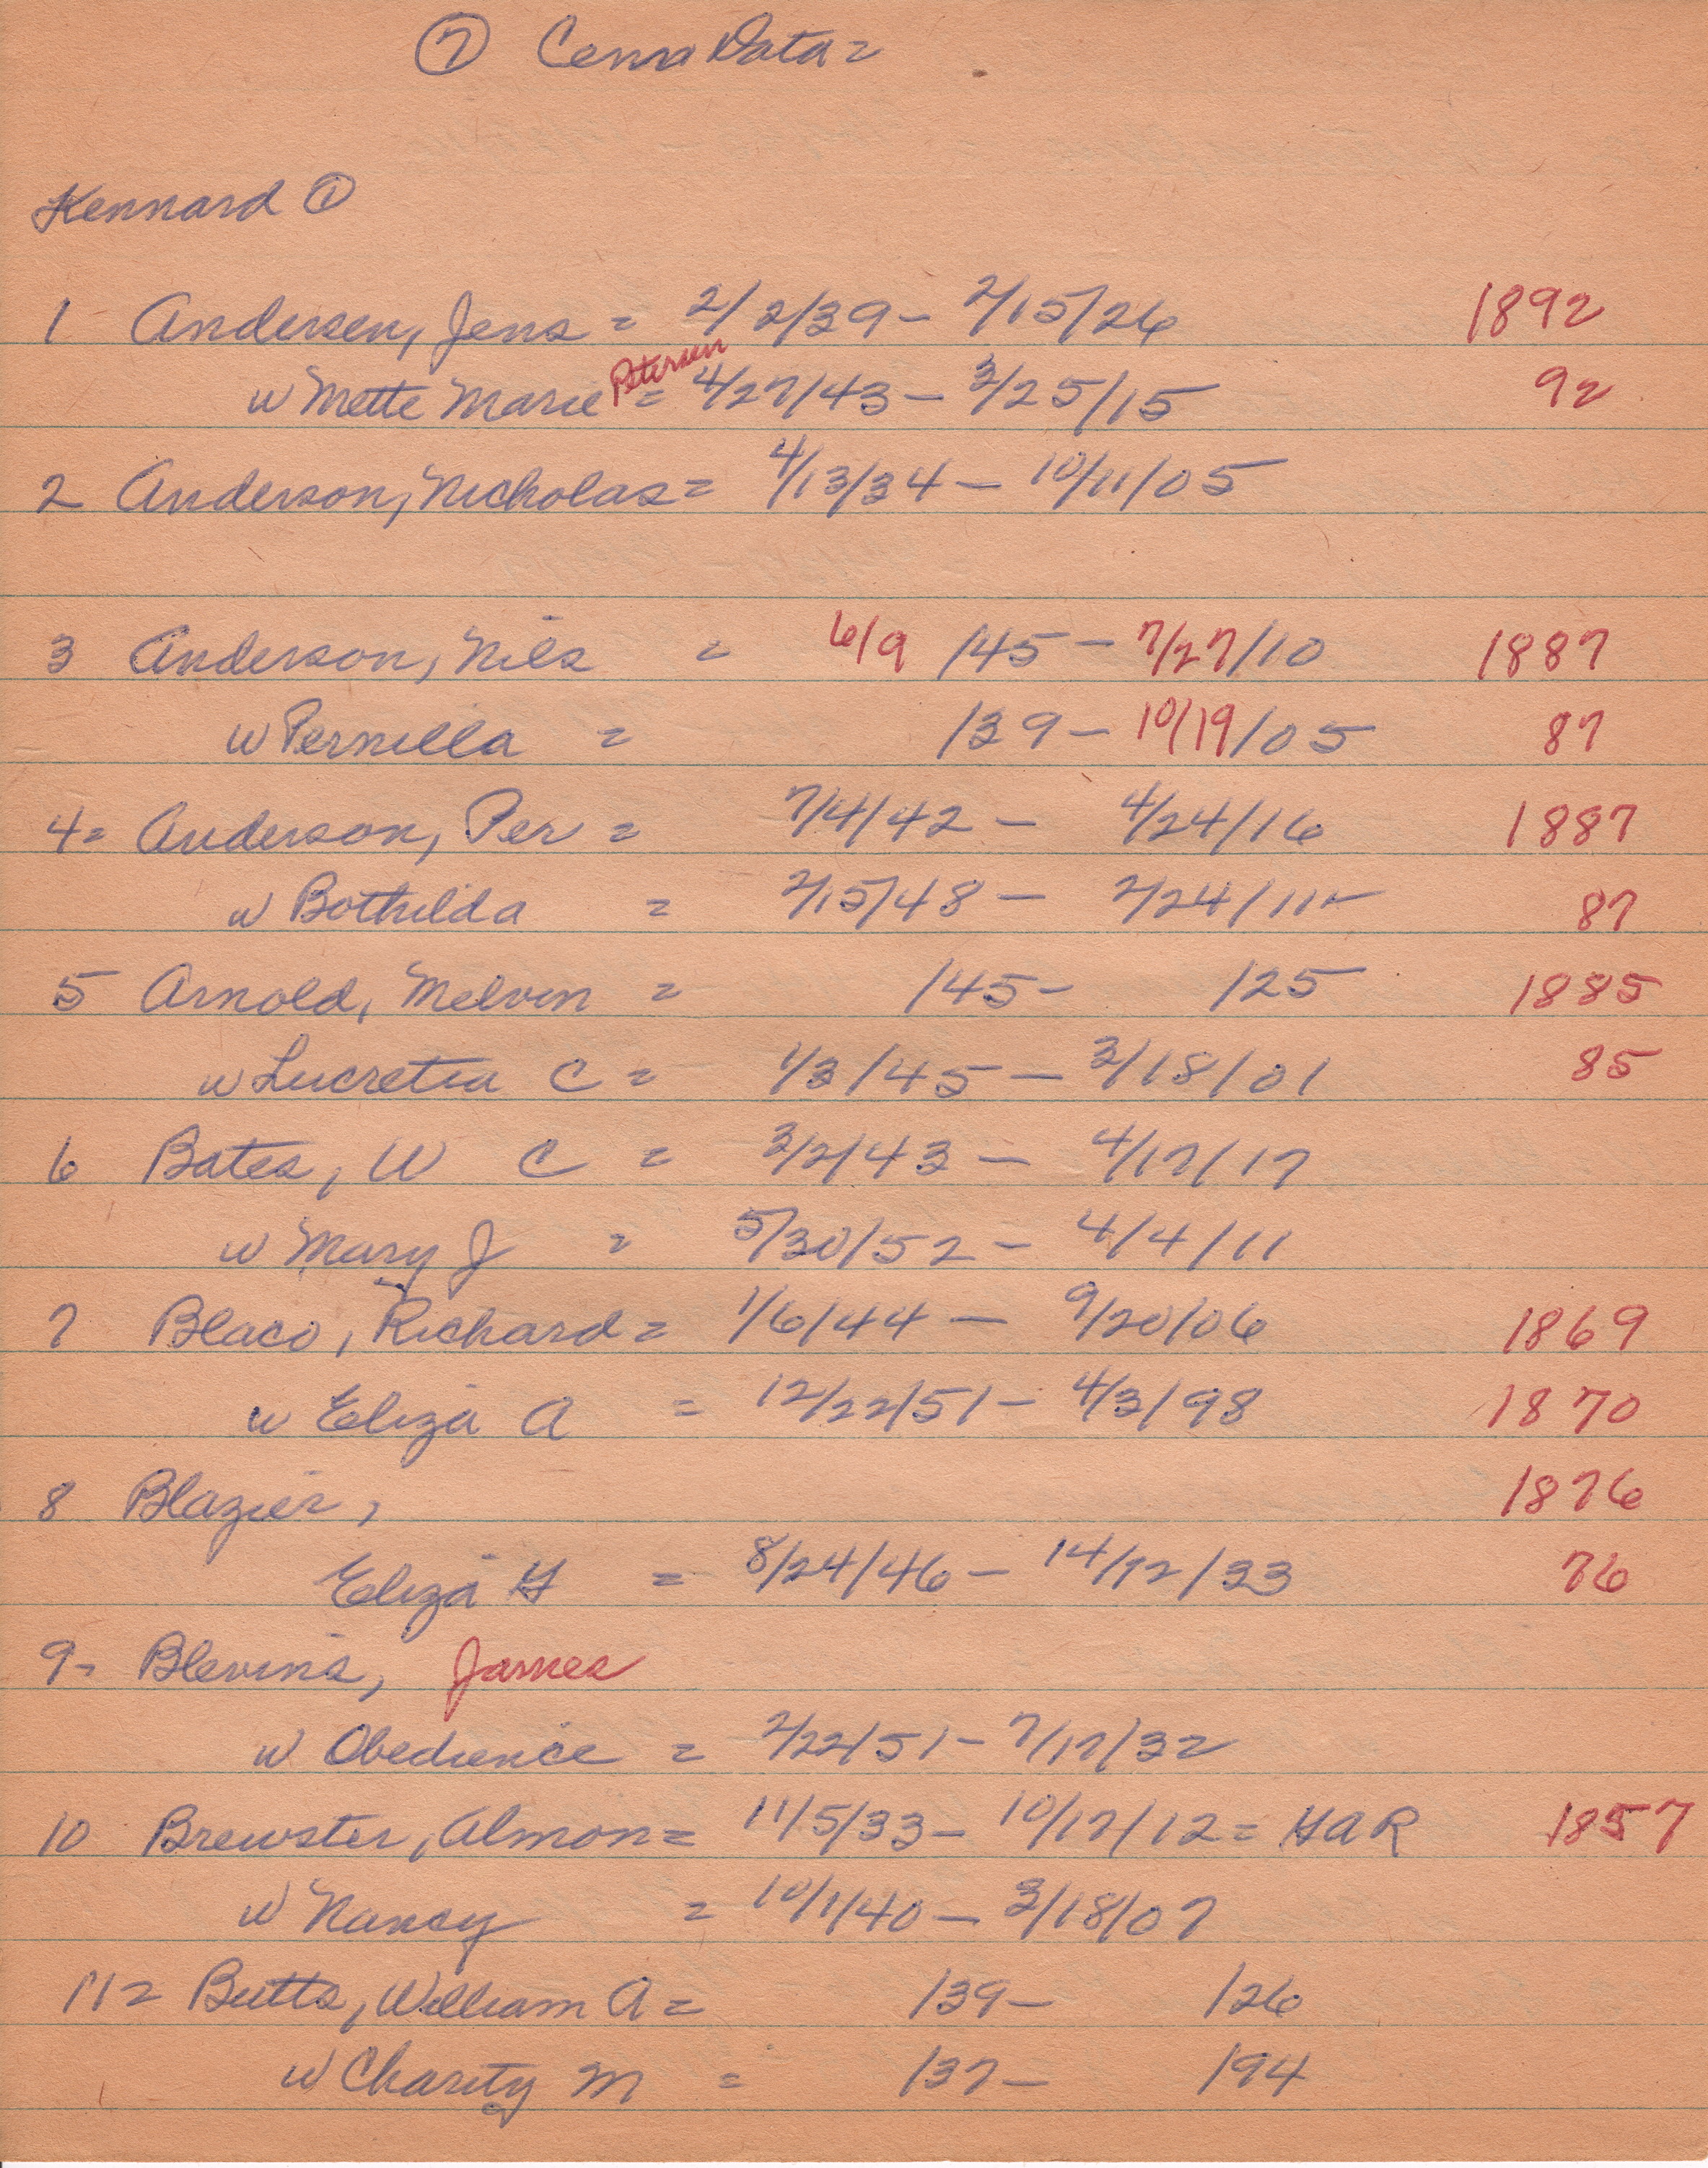 ⑦ Cem Data =
Kennard ①
1 Andersen, Jens = 2/2/39 - 2/15/26 1892
w Mette Marie Petersen = 4/27/43 - 3/25/15 92
2 Anderson, Nicholas = 4/13/34 - 10/11/05
3 Anderson, Nils = 6/9/45 - 7/27/10 1887
w Pernilla = /39 - 10/19/05 87
4 = Anderson, Per = 7/4/42 - 4/24/16 1887
w Bothilda = 2/15/48 - 2/24/11 87
5 Arnold, Melvin = /45 - /25 1885
w Lucretia C = 1/3/45 - 3/18/01 85
6 Bates, W C = 3/2/43 - 4/17/17
w Mary J = 5/30/52 - 4/4/11
7 Blaco, Richard = 1/6/44 - 9/20/06 1869
w Eliza A = 12/22/51 - 4/3/98 1870
8 Blazier, 1876
Eliza G = 8/24/46 - /12/33 76
9 - Blevins, James
w Obedience = 2/22/51 - 7/17/32
10 Brewster, Almon = 11/5/33 - 10/17/12 = GAR 1857
w Nancy = 10/1/40 - 3/18/07
11 = Butts, William A = /39 - /26
w Charity M = /37 - /94